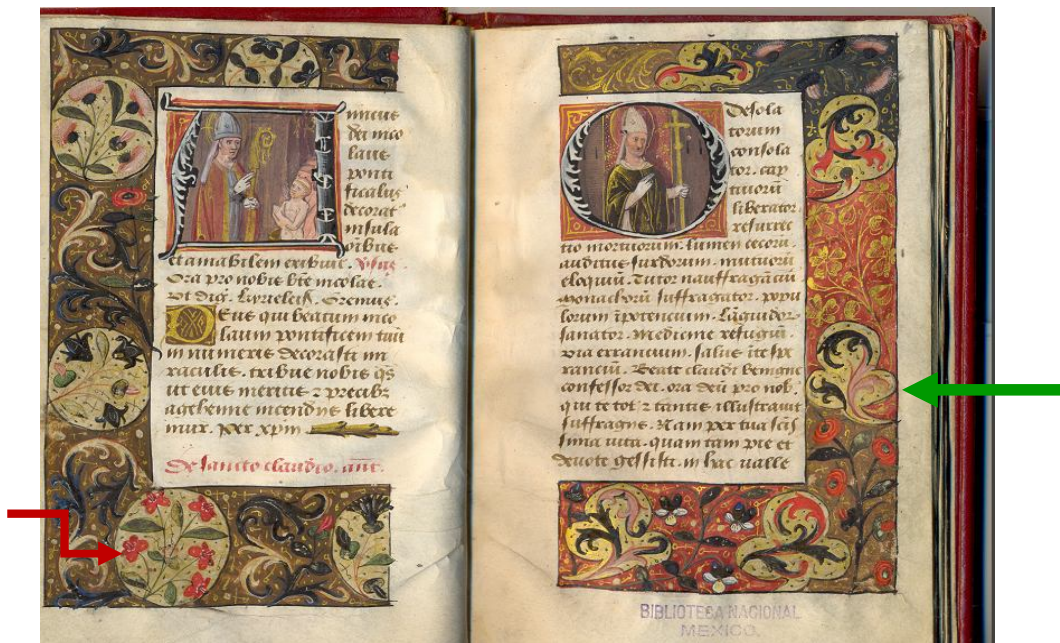 Amicus
dei nico
laus
ponti
ficalus
decorat
insula
oībus
et amabilem exibuit.
Ora pro nobis bte nicolae.
Vt dig. kyrieleis. Oremus.
Deus qui beatum nico
laum pontificem tuū
in numeris decorasti mi
raculis. tribue nobis qs
ut eius meritis z precibz
a gehenne incendijs libere
mur. Per xpm
De sancto claudio. ant.
O desola
torum
consola
tor. cap
tiuorū
liberator.
resurrec
tio mortuorum. lumen cecorū.
auditus surdorum. mutuorū
eloquiū. Tutor nauffragāciū
monachorū suffragator. popu
lorum īpotencium. Lāguidoꝝ
sanator. Medicine refugiū.
via errancium. salus ī te spe
rancium. Beate claudi benigne
confessor dei. ora deū pro nob.
qui te tot z tantis illustrauit
suffragiis. Nam per tua scīs
sima uita. quam tam pie et
deuote gessisti. in hac ualle
BIBLIOTECA NACIONAL
MEXICO.